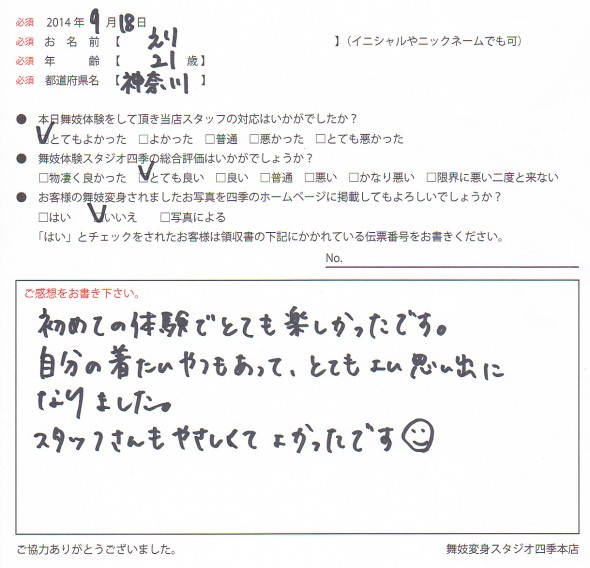 必須 2014年 9月18日
必須 お名前【 えり 】(イニシャルやニックネームでも可)
必須 年 齢【 21 歳】
必須 都道府県名【神奈川】
● 本日舞妓体験をして頂き当店スタッフの対応はいかがでしたか?
☑とてもよかった □よかった □普通 □悪かった □とても悪かった
● 舞妓体験スタジオ四季の総合評価はいかがでしょうか?
□物凄く良かった ☑とても良い □良い □普通 □悪い □かなり悪い □限界に悪い二度と来ない
● お客様の舞妓変身されましたお写真を四季のホームページに掲載してもよろしいでしょうか?
□はい ☑いいえ □写真による
「はい」とチェックをされたお客様は領収書の下記にかかれている伝票番号をお書きください。
No.
ご感想をお書き下さい。
初めての体験でとても楽しかったです。
自分の着たいやつもあって、とてもよい思い出に
なりました。
スタッフさんもやさしくてよかったです☺
ご協力ありがとうございました。
舞妓変身スタジオ四季本店